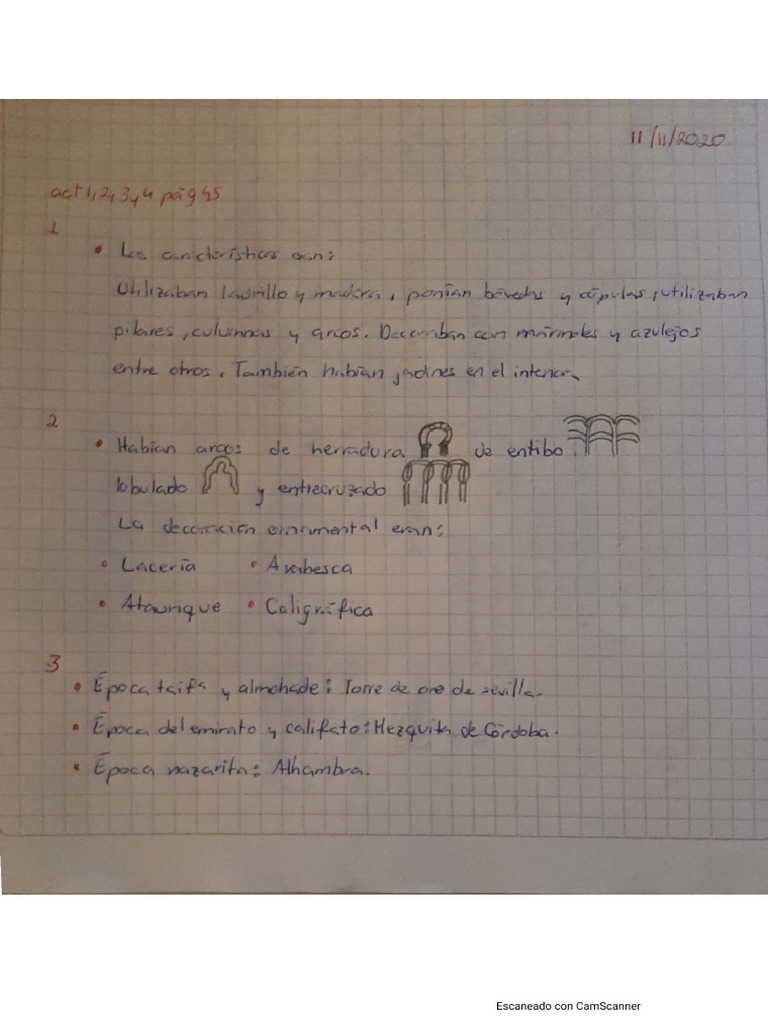 11/11/2020
act 1, 2, 3, 4 pág 45
1
• Las características eran:
Utilizaban ladrillo y madera, ponían bóvedas y cúpulas, utilizaban
pilares, columnas y arcos. Decoraban con mármoles y azulejos
entre otros. También habían jadines en el interior.
2
• Habían arcos de herradura de entibo
lobulado y entrecruzado
La decoración ornamental eran:
• Lacería • Arabesca
• Ataurique • Caligráfica
3
• Época taifa y almohade: Torre de oro de sevilla.
• Época del emirato y califato: Mezquita de Córdoba.
• Época nazarita: Alhambra.
Escaneado con CamScanner